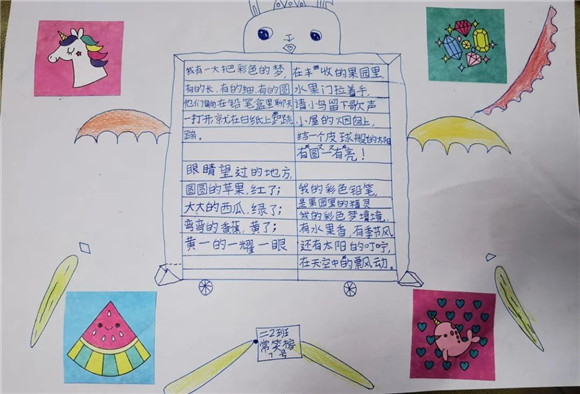 我有一大把彩色的梦
有的长,有的细,有的圆
他们躺在铅笔盒里聊天
一打开就在白纸上蹦跳
跳。
眼睛望过的地方,
圆圆的苹果,红了;
大大的西瓜,绿了;
弯弯的香蕉,黄了;
黄一的一耀一眼
在丰收的果园里
水果门拉着手
请小鸟留下歌声
小屋的烟囱上
结一个皮球般的太阳
有圆一有亮!
我的彩色铅笔
是果园里的精灵
我的彩色梦境
有水果香,有季节风
还有太阳的叮咛,
在天空中的飘风动。
二2班
常笑
号